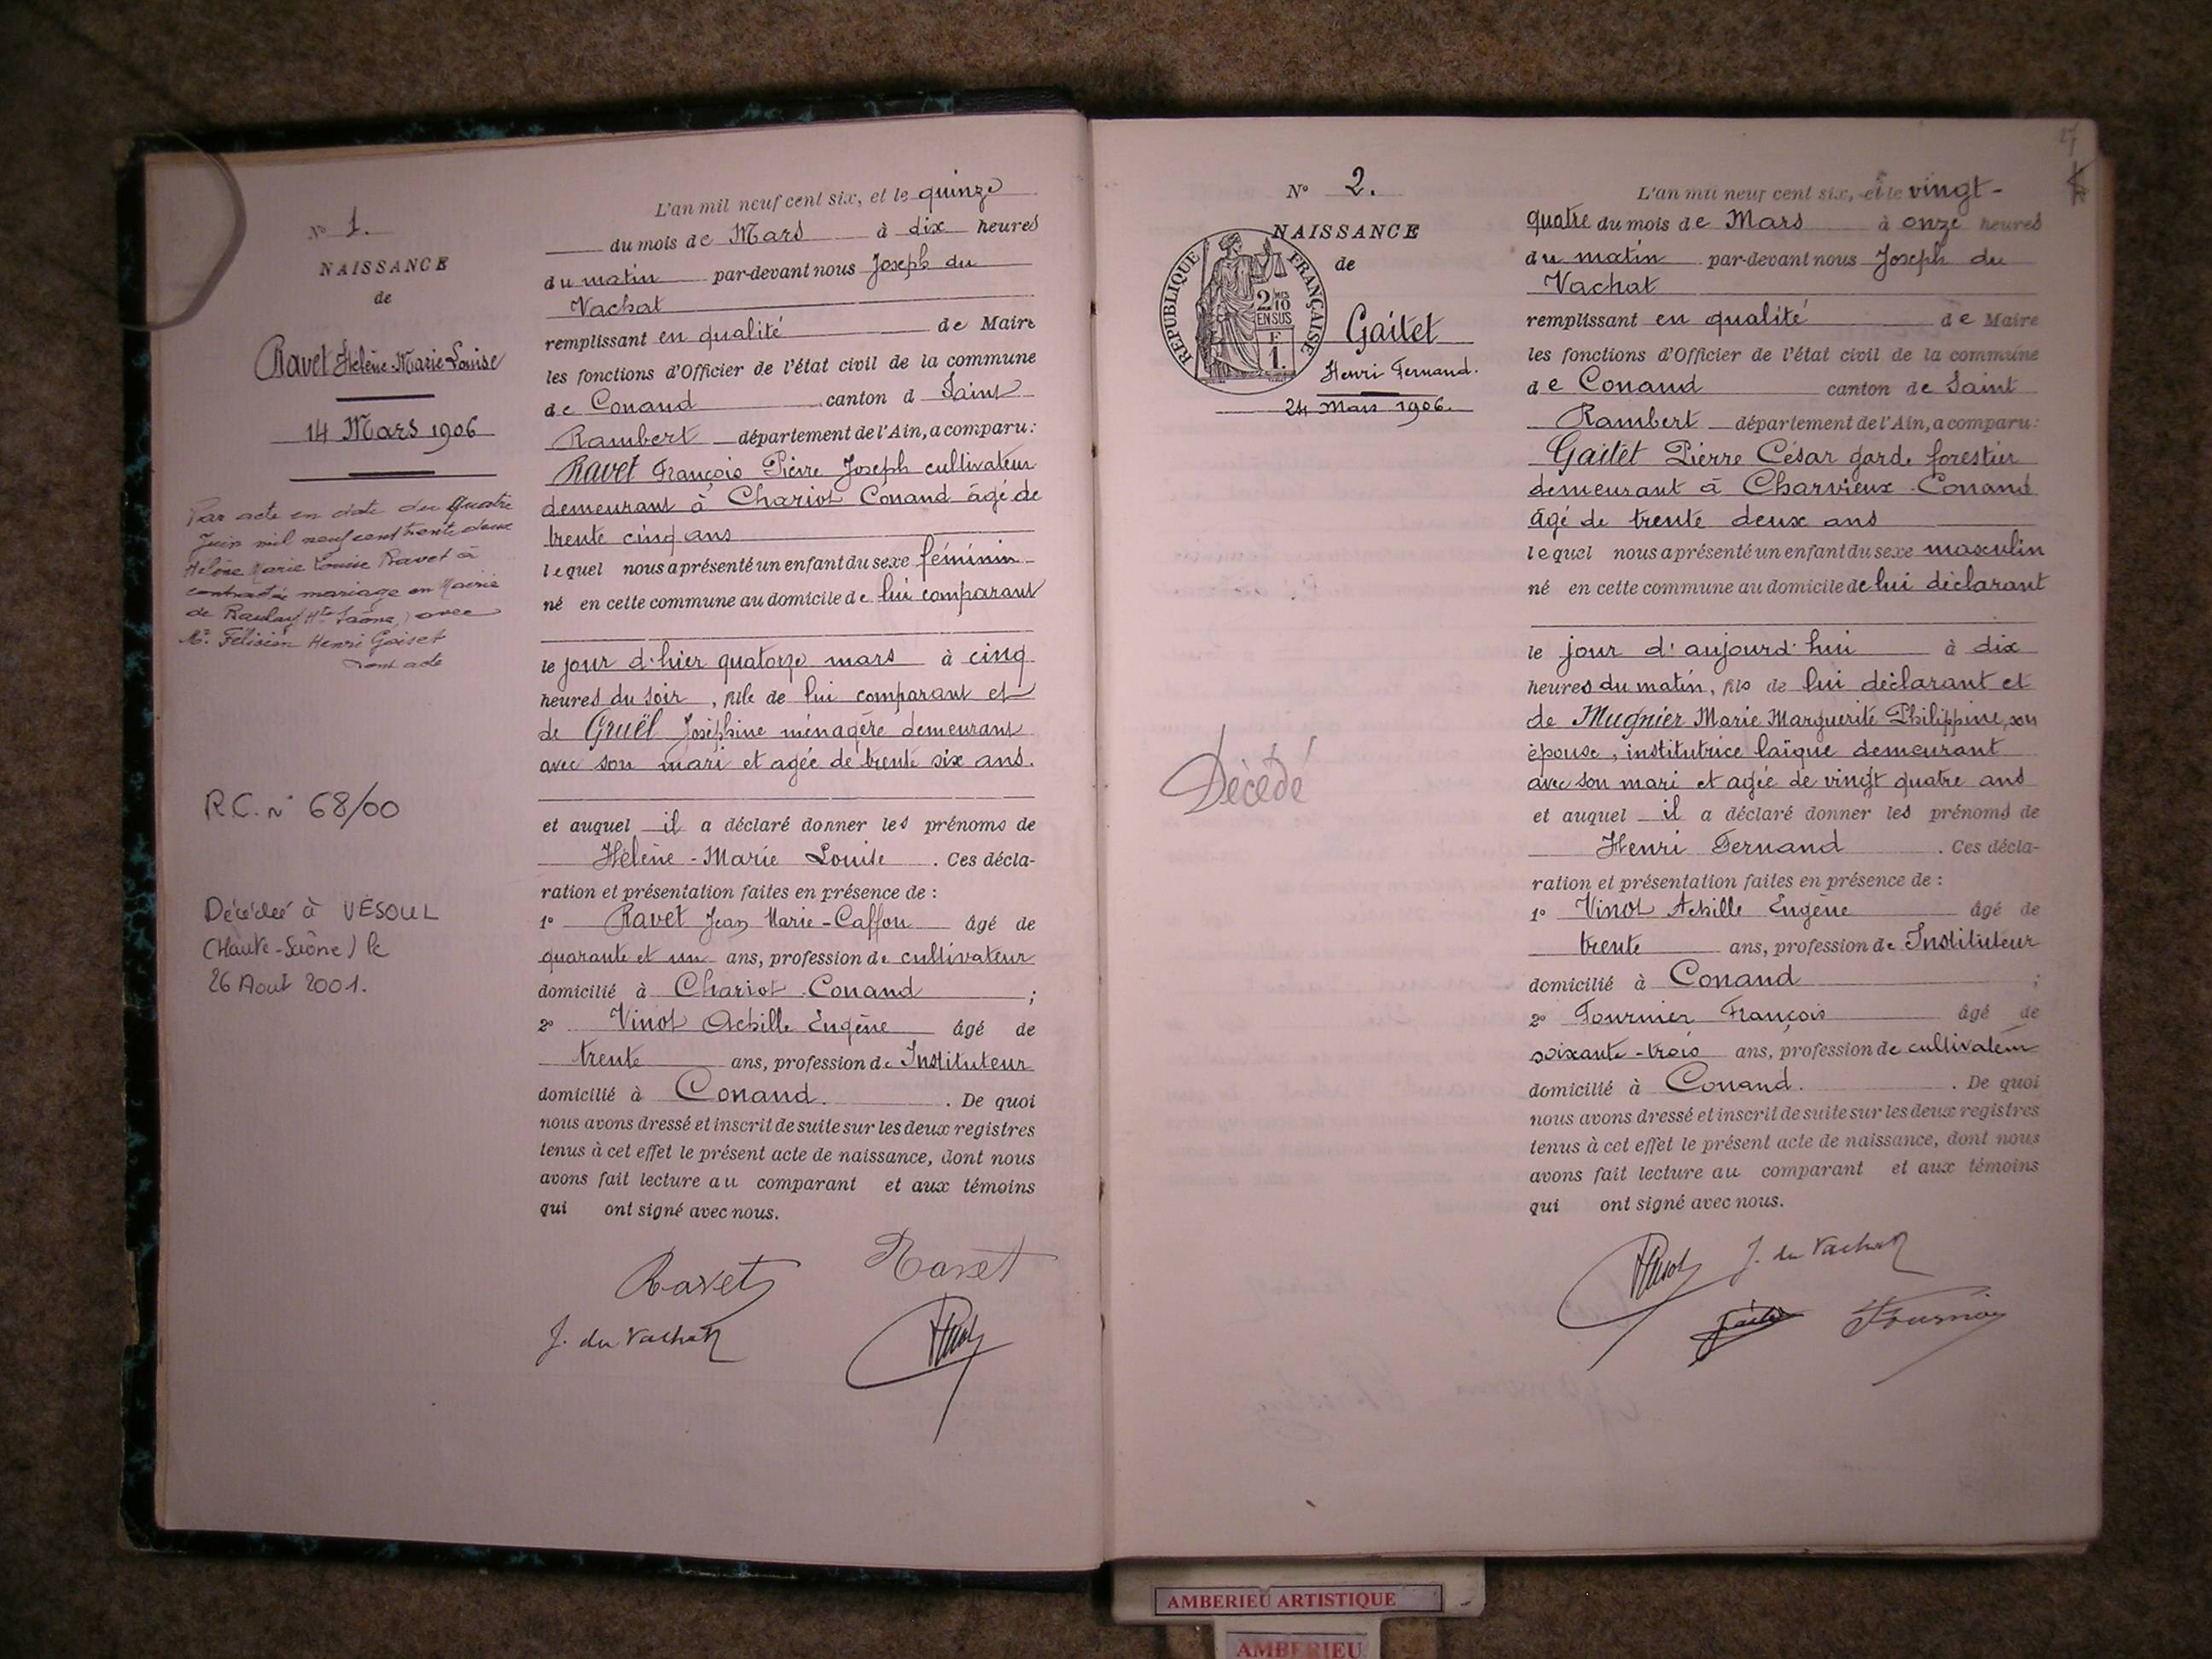 N° 1.
NAISSANCE
de
Ravet Hélène-Marie-Louise
14 Mars 1906
Par acte en date du Quatre
Juin mil neuf cent trente deux
Hélène Marie Louise Ravet a
contracté mariage en Mairie
de (Hte Saône) avec
Mr Félicien Henri
Dont acte
R.C. n° 68/00
Décédée à VESOUL
(Haute-Saône) le
26 Aout 2001.
L'an mil neuf cent six, et le quinze
du mois de Mars à dix heures
du matin par-devant nous Joseph du
Vachat
remplissant en qualité de Maire
les fonctions d'Officier de l'état civil de la commune
de Conand canton d Saint
Rambert département de l'Ain, a comparu:
Ravet François Pierre Joseph cultivateur
demeurant à Chariot Conand âgé de
trente cinq ans
lequel nous a présenté un enfant du sexe féminin
né en cette commune au domicile de lui comparant
le jour d'hier quatorze mars à cinq
heures du soir, fille de lui comparant et
de Gruël Joséphine ménagère demeurant
avec son mari et agée de trente six ans.
et auquel il a déclaré donner les prénoms de
Hélène-Marie Louise. Ces décla-
ration et présentation faites en présence de:
1° Ravet Jean Marie-Caffou âgé de
quarante et un ans, profession de cultivateur
domicilié à Chariot-Conand;
2° Vinot Achille Eugène âgé de
trente ans, profession de Instituteur
domicilié à Conand. De quoi
nous avons dressé et inscrit de suite sur les deux registres
tenus à cet effet le présent acte de naissance, dont nous
avons fait lecture au comparant et aux témoins
qui ont signé avec nous.
Ravet Ravet
J. du Vachat
27
N° 2.
NAISSANCE
de
RÉPUBLIQUE FRANÇAISE
2/10 MES
EN SUS
F
1.
Gaitet
Henri Fernand.
24 Mars 1906.
Décédé
L'an mil neuf cent six, et le vingt-
quatre du mois de Mars à onze heures
du matin par-devant nous Joseph du
Vachat
remplissant en qualité de Maire
les fonctions d'Officier de l'état civil de la commune
de Conand canton de Saint
Rambert département de l'Ain, a comparu:
Gaitet Pierre César garde forestier
demeurant à Charvieux-Conand
âgé de trente deux ans
lequel nous a présenté un enfant du sexe masculin
né en cette commune au domicile de lui déclarant
le jour d'aujourd'hui à dix
heures du matin, fils de lui déclarant et
de Mugnier Marie Marguerite Philippine, son
épouse, institutrice laïque demeurant
avec son mari et agée de vingt quatre ans
et auquel il a déclaré donner les prénoms de
Henri Fernand. Ces décla-
ration et présentation faites en présence de:
1° Vinot Achille Eugène âgé de
trente ans, profession de Instituteur
domicilié à Conand;
2° Fournier François âgé de
soixante-trois ans, profession de cultivateur
domicilié à Conand. De quoi
nous avons dressé et inscrit de suite sur les deux registres
tenus à cet effet le présent acte de naissance, dont nous
avons fait lecture au comparant et aux témoins
qui ont signé avec nous.
J. du Vachat
Fournier
AMBERIEU ARTISTIQUE
AMBERIEU